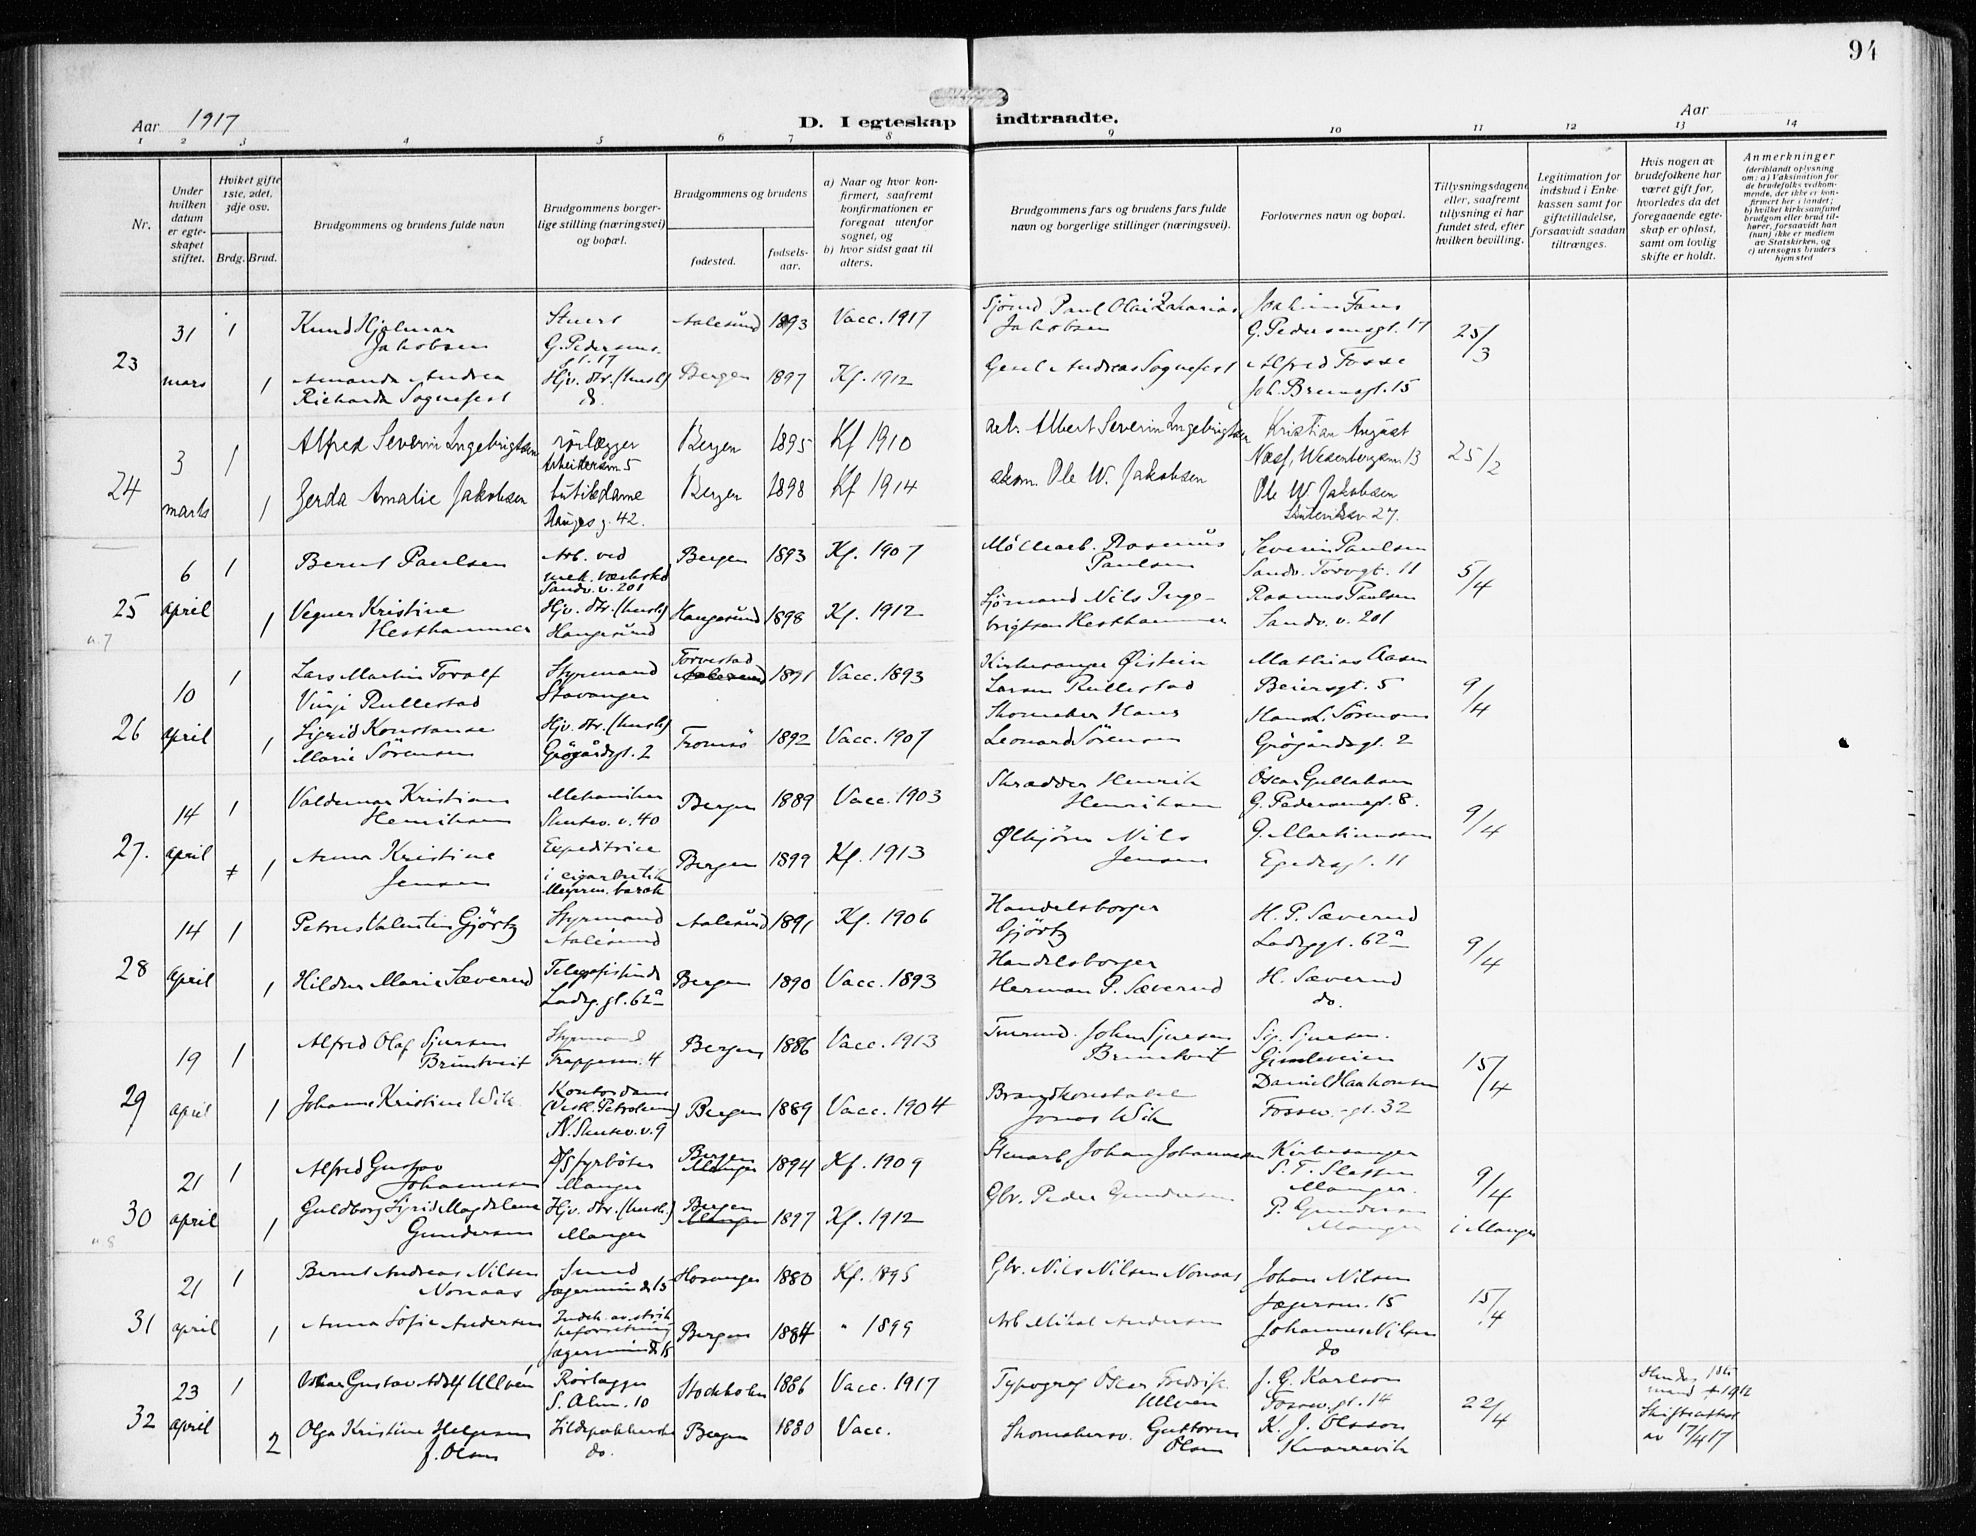 94
Aar 1917
D. I egteskap indtraadte.
Aar
1 2 3 4 5 6 7 8 9 10 11 12 13 14
Nr.
Under hvilken datum er egteskapet stiftet.
Hviket gifte 1ste, 2det, 3dje osv.
Brdg. Brud.
Brudgommens og brudens fulde navn
Brudgommens borgerlige stilling (næringsvei) og bopæl.
Brudgommens og brudens
fødested.
fødselsaar.
a) Naar og hvor konfirmert, saafremt konfirmationen er foregaat utenfor sognet, og
b) hvor sidst gaat til alters.
Brudgommens fars og brudens fars fulde navn og borgerlige stillinger (næringsvei).
Forlovernes navn og bopæl.
Tillysningsdagene eller, saafremt tillysning ei har fundet sted, efter hvilken bevilling.
Legitimation for indskud i Enkekassen samt for giftetilladelse, forsaavidt saadan tiltrænges.
Hvis nogen av brudefolkene har været gift før, hvorledes da det foregaaende egteskap er opløst, samt om lovlig skifte er holdt.
Anmerkninger (deriblandt oplysning om: a) Vaksination for de brudefolks vedkommende, der ikke er konfirmert her i landet; b) hvilket kirkesamfund brudgom eller brud tilhører, forsaavidt han (hun) ikke er medlem av Statskirken, og c) utensogns bruders hjemsted
23
31 mars 1
Knud Hjalmar Jakobsen
Stuert G. Pedersens gt. 17
Aalesund 1893 Vacc. 1917
Sjømd Paul Olai Zakarias Jakobsen
G. Pedersensgt. 17
25/3
1
Amanda Andrea Rickarda Sognefest
Hjv. dtr. (husl.) do.
Bergen 1897 Kf. 1912
Andreas Sognefest
Alfred Fosse
Joh. Brunsgt. 15
24
3 marts 1
Alfred Severin Ingebrigtsen
rørlægger Arbeidersm 5
Bergen 1895 Kf 1910
Albert Severin Ingebrigtsen
Kristian August Næss, Wesenbergsm. 13
25/2
1
Gerda Amalie Jakobsen
butikdame Hauges g. 42.
Bergen 1898 Kf 1914
Ole W. Jakobsen
Ole W. Jakobsen
27.
25
6 april 1
Bernt Paulsen
Arb. ved mek. værksted Sandv. v. 201
Bergen 1893 Kf. 1907
Møllearb. Rasmus Paulsen
Severin Paulsen
Sandv. Torvgt. 11
5/4
n. 7
1
Vegner Kristine Hesthammer
Hjv. dtr. (husl.) Haugesund
Haugesund 1898 Kf. 1912
Sjømand Nils Ingebrigtsen Hesthammer
Rasmus Paulsen
Sandv. v. 201
26
10 april 1
Lars Martin Toralf Vinje Rullestad
Styrmand Stavanger
Torvestad Aalesund 1891 Vacc. 1893
Kirkesanger Øistein Larsen Rullestad
Mathias Aasen
Beiersgt. 5
9/4
1
Sigrid Konstanse Marie Sörensen
Hjv. dtr. (husl.) Grögårdsgt. 2
Tromsö 1892 Vacc. 1907
Skomaker Hans Leonard Sörensen
Hans L. Sörensen
Grögårdsgt. 2
27.
14 april 1
Valdemar Kristian Henriksen
Mekaniker Skutev. v. 40
Bergen 1889 Vacc. 1903
Skrædder Henrik Henriksen
Oscar Gullaksen
G. Pedersensgt. 8.
9/4
1
Anna Kristine Jensen
Expeditrice i cigarbutik
Bergen 1899 Kf. 1913
Ølkjörer Nils Jensen
G. Martinussen
Egedesgt. 11
28
14 april 1
Petrus Valentin Gjörtz
Styrmand Aalesund
Aalesund 1891 Kf. 1906
Handelsborger Gjörtz
H. P. Sæverud
Ladeggt. 62a
9/4
1
Hildur Marie Sæverud
Ladeg. gt. 62a
Bergen 1890 Vacc. 1893
Handelsborger Herman P. Sæverud
H. Sæverud
do.
29
19 april 1
Alfred Olaf Sjursen Bruntveit
Styrmand Trappesm. 4
Bergen 1886 Vacc. 1913
Tmrmd. Johan Sjursen Bruntveit
Sjursen. Gimleveien
15/4
1
Johanne Kristine Wik
Kontordame (Vestl. Petroleum) N. Skutev. v. 9
Bergen 1889 Vacc. 1904
Brandkonstabel Jonas Wik
Daniel Haakonsen
Fossw. gt. 32
30
21 april 1
Alfred Gustav Johannessen
D/S fyrböter Manger
Bergen Manger 1894 Kf. 1909
Stenarb. Johan Johannessen
Kirkesanger S. T. Sletten Manger.
9/4
n. 8
1
Guldborg Sigrid Magdalene Gundersen
Hjv. dtr. (husl.) Manger
Bergen Manger 1897 Kf. 1912
Gbr. Peder Gundersen
P. Gundersen Manger
i Manger
31
21 april 1
Bernt Andreas Nilsen Nonaas
Smed
Hosanger 1880 Kf. 1895
Gbr. Nils Nilsen Nonaas
Johan Nilsen
Jægersm. 15
15/4
1
Anna Sofie Andersen
Bergen 1884 " 1899
Arb Mikal Andersen
Johannes Nilsen
do
32
23 april 1
Oskar Gustav Adolf Ullvén
Rörlægger S. Alm. 10
Stockholm 1886 Vacc. 1917
Typograf Oscar Fredrik Ullven
J. G. Karlson
Fossw. gt. 14
22/4
2
Olga Kristine Helgesen f. Olsen
do.
Bergen 1880 Vacc.
Guttorm Olsen
K. J. Olsson
Knarrevik
Hendes 1ste mand + 1912
Skifteattest av 17/4 17